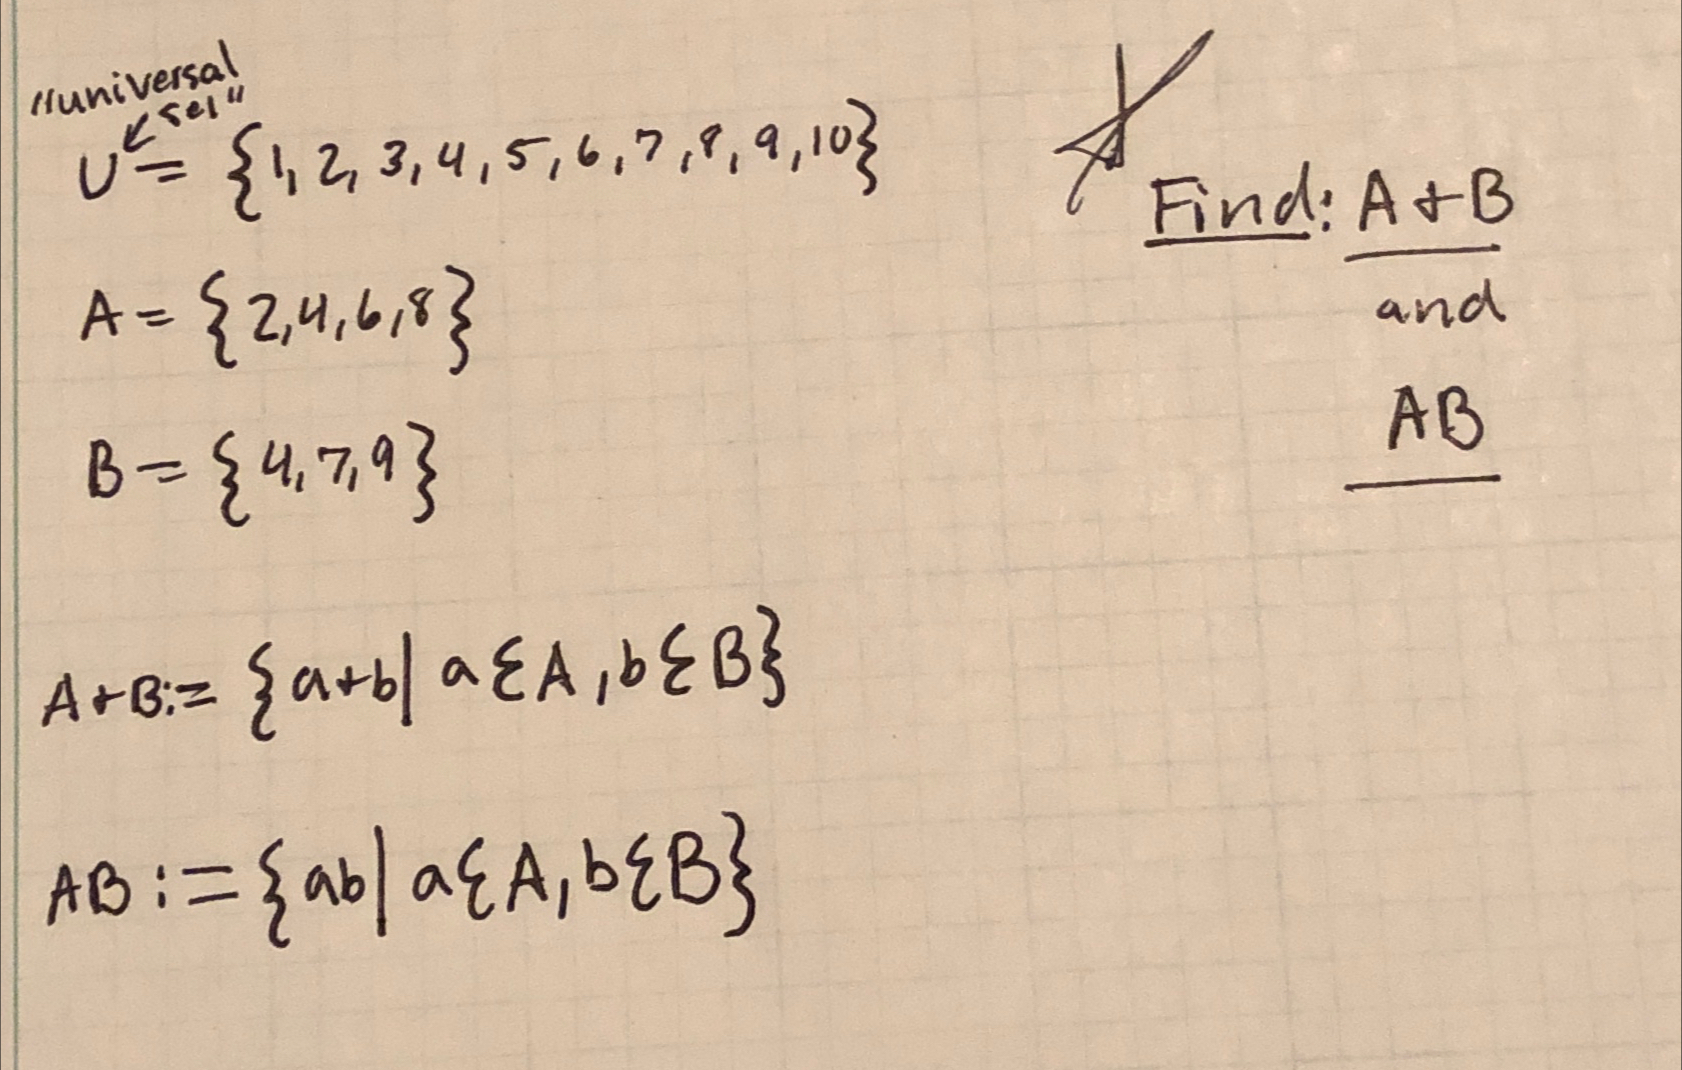 "universal
set"
U = {1, 2, 3, 4, 5, 6, 7, 8, 9, 10}
A = {2, 4, 6, 8}
B = {4, 7, 9}
A+B := {a+b | a ∈ A, b ∈ B}
AB := {ab | a ∈ A, b ∈ B}
Find: A + B
and
AB